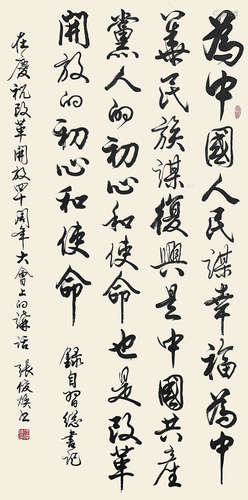 為中國人民謀幸福為中
華民族謀復興是中國共產
黨人的初心和使命也是改革
開放的初心和使命 錄自習總書記
在慶祝改革開放四十周年大會上的講話 張俊